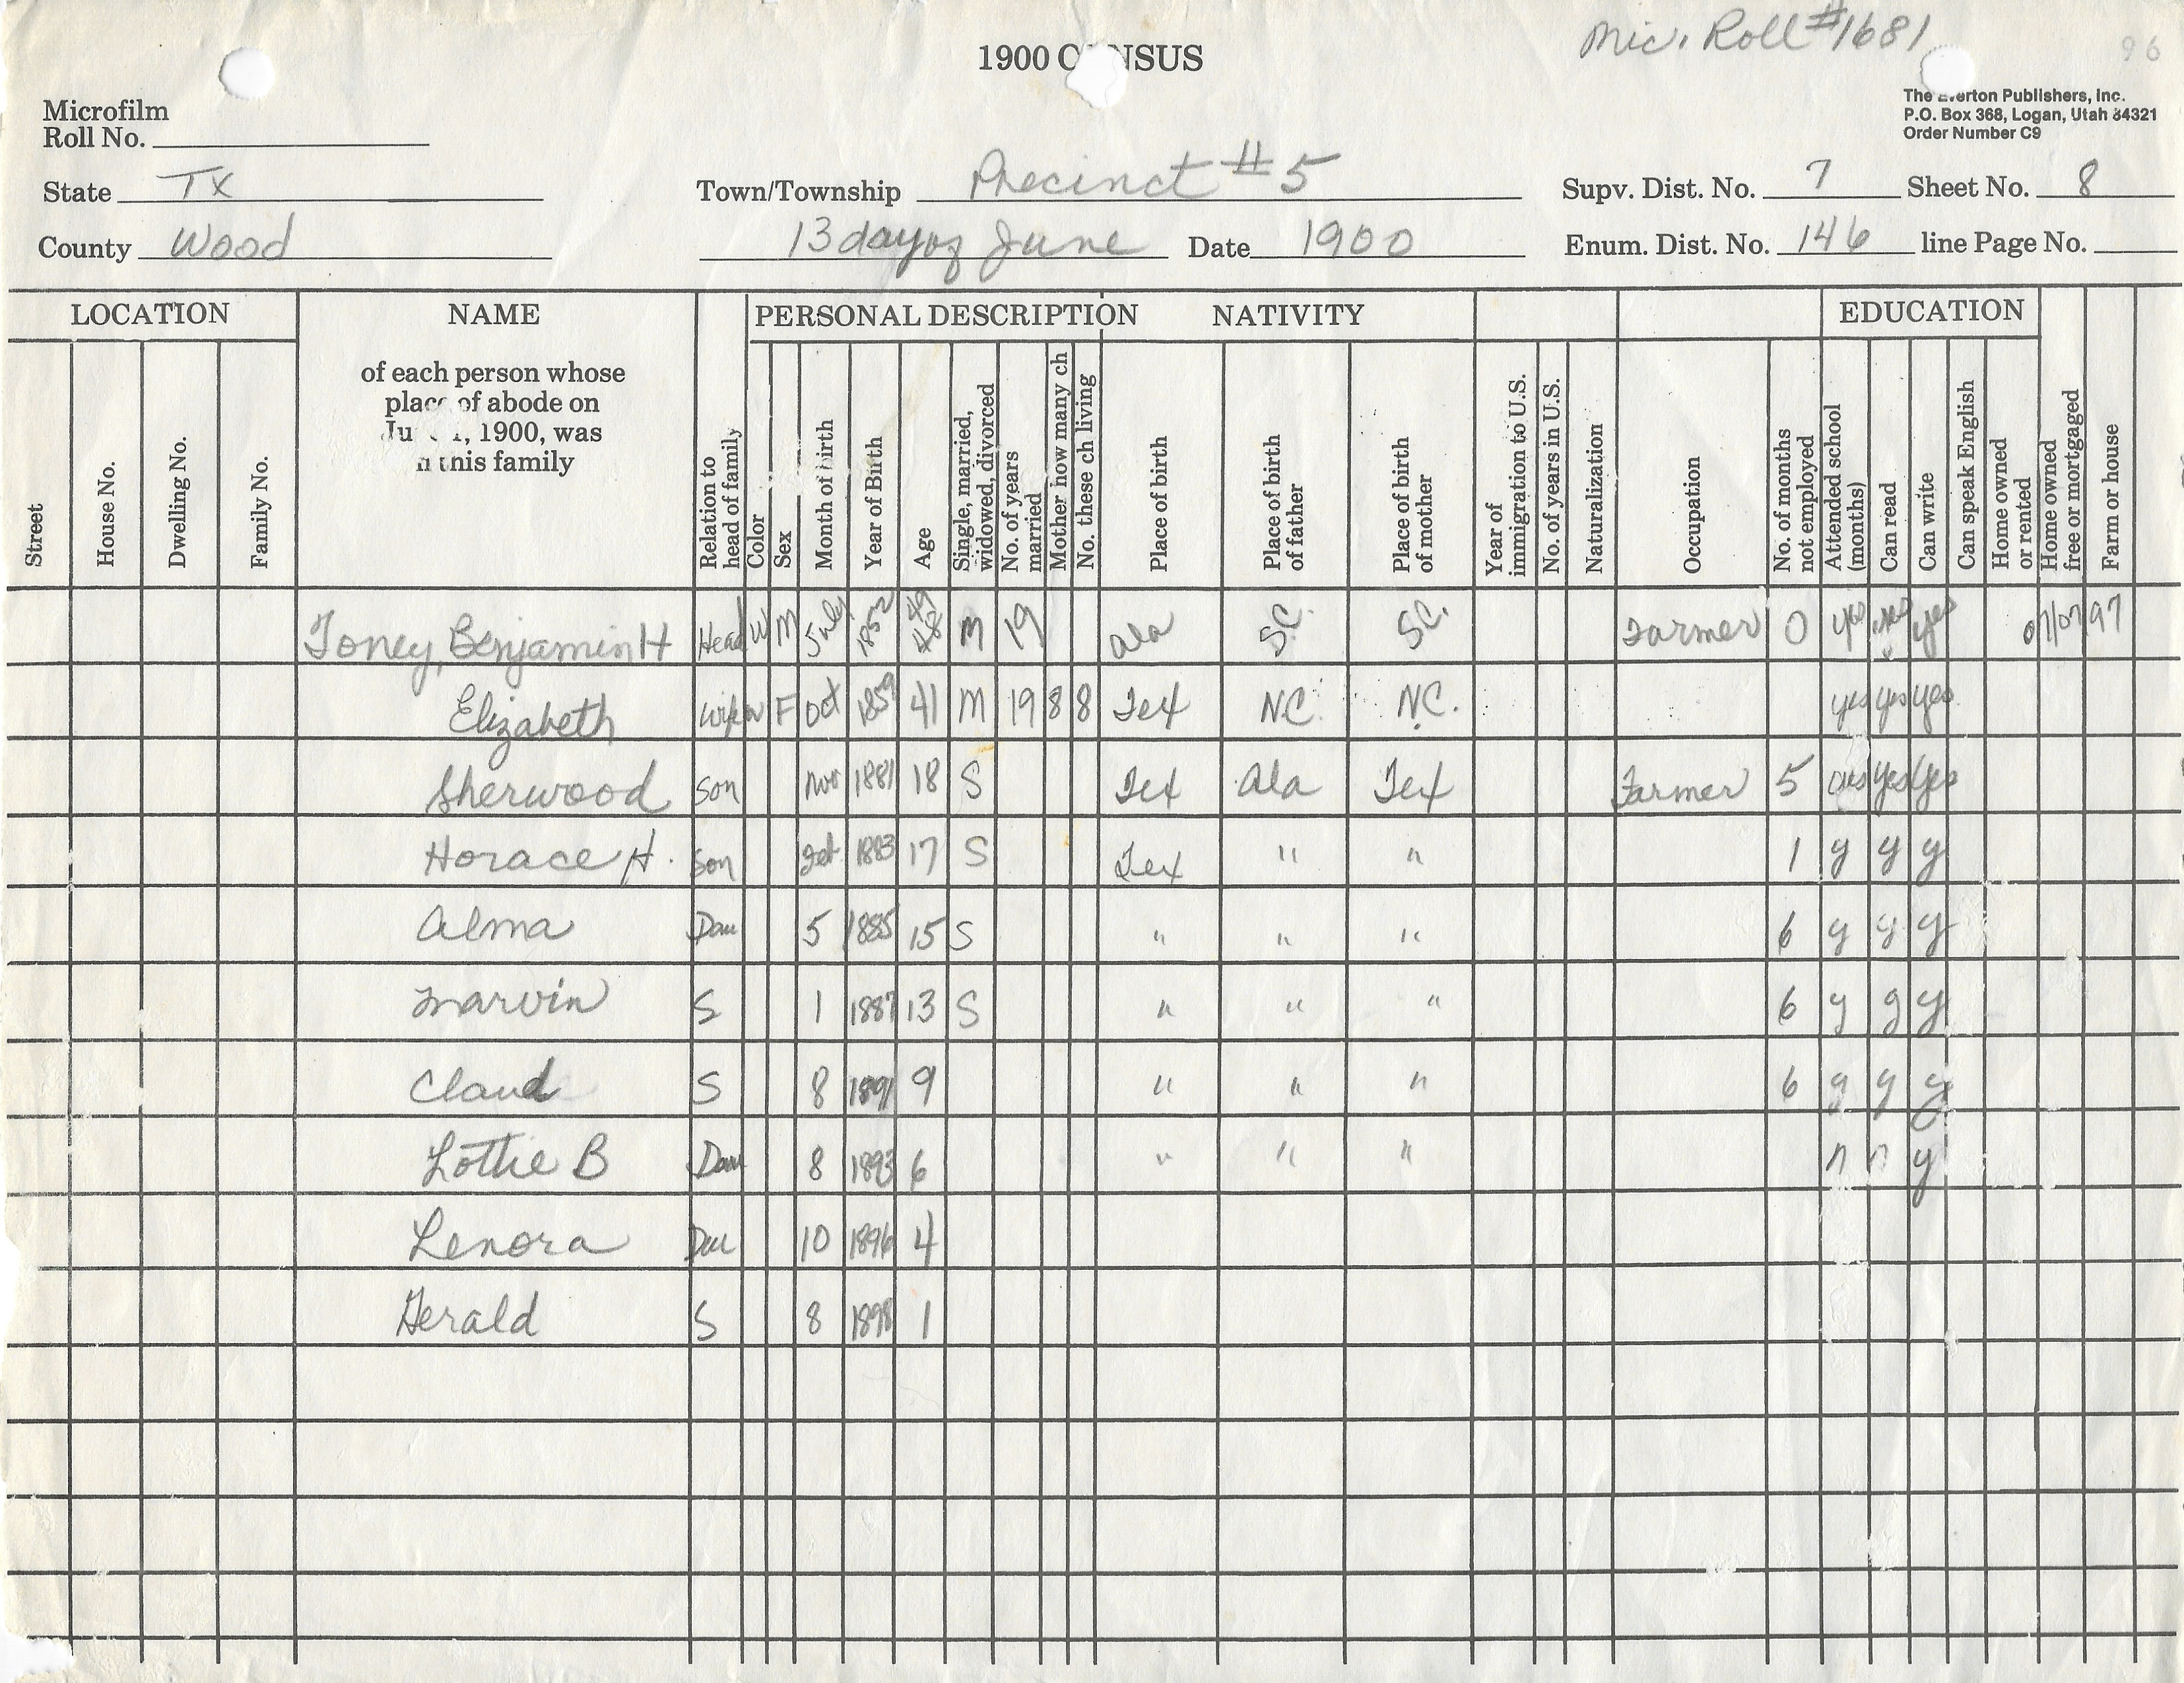 Mic. Roll #1681
96
1900 CENSUS
The Everton Publishers, Inc.
P.O. Box 368, Logan, Utah 84321
Order Number C9
Microfilm
Roll No.
State Tx Town/Township Precinct #5 Supv. Dist. No. 7 Sheet No. 8
County Wood 13 day of June Date 1900 Enum. Dist. No. 146 line Page No.
LOCATION NAME PERSONAL DESCRIPTION NATIVITY EDUCATION
of each person whose
place of abode on
1, 1900, was
this family
Street
House No.
Dwelling No.
Family No.
Relation to
head of family
Color
Sex
Month of birth
Year of Birth
Age
Single, married,
widowed, divorced
No. of years
married
Mother how many ch
No. these ch living
Place of birth
Place of birth
of father
Place of birth
of mother
Year of
immigration to U.S.
No. of years in U.S.
Naturalization
Occupation
No. of months
not employed
Attended school
(months)
Can read
Can write
Can speak English
Home owned
or rented
Home owned
free or mortgaged
Farm or house
Toney, Benjamin H Head W M July 1852 49 48 M 19 Ala S.C. S.C. Farmer 0 yes yes yes 97
Elizabeth Wife W F Oct 1859 41 M 19 8 8 Tex N.C. N.C. yes yes yes
Sherwood Son Nov 1881 18 S Tex Ala Tex Farmer 5 yes yes
Horace H. Son Feb 1883 17 S Tex " " 1 y y y
Alma Dau 5 1885 15 S " " " 6 y y y
Marvin S 1 1887 13 S " " " 6 y y y
Claud S 8 1891 9 " " " 6 y y y
Lottie B Dau 8 1893 6 " " " n n y
Lenora Dau 10 1896 4
Gerald S 8 1898 1